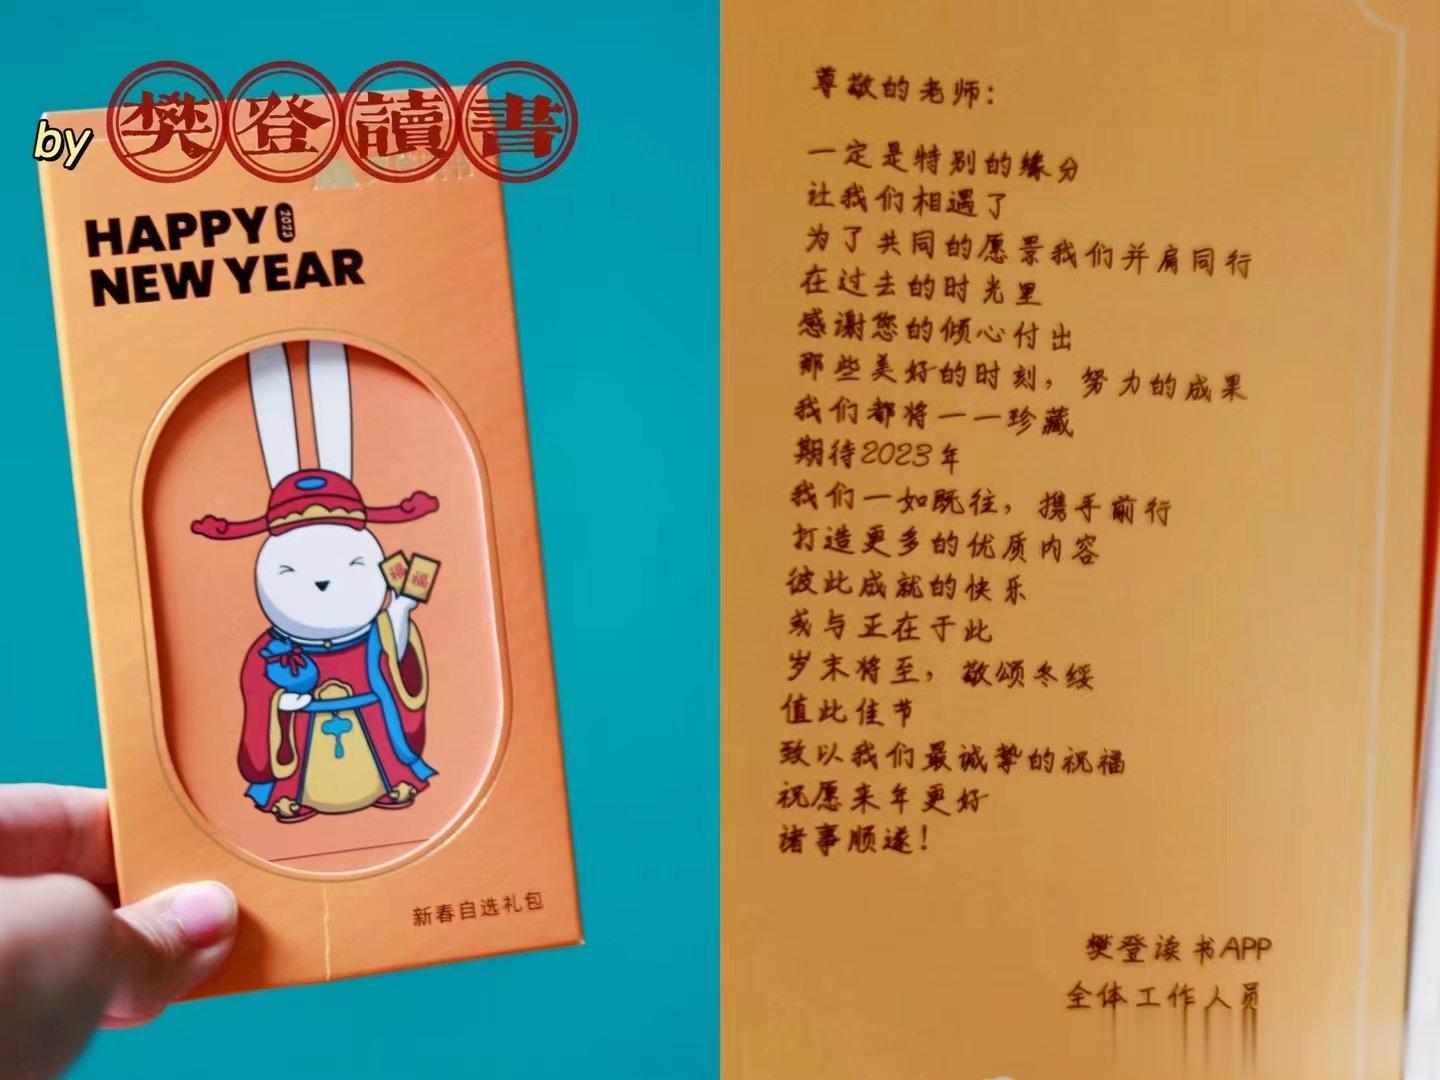 by 樊登讀書
HAPPY 2023
NEW YEAR
福 福
新春自选礼包
尊敬的老师：
一定是特别的缘分
让我们相遇了
为了共同的愿景我们并肩同行
在过去的时光里
感谢您的倾心付出
那些美好的时刻，努力的成果
我们都将一一珍藏
期待2023年
我们一如既往，携手前行
打造更多的优质内容
彼此成就的快乐
或与正在于此
岁末将至，敬颂冬绥
值此佳节
致以我们最诚挚的祝福
祝愿来年更好
诸事顺遂！
樊登读书APP
全体工作人员